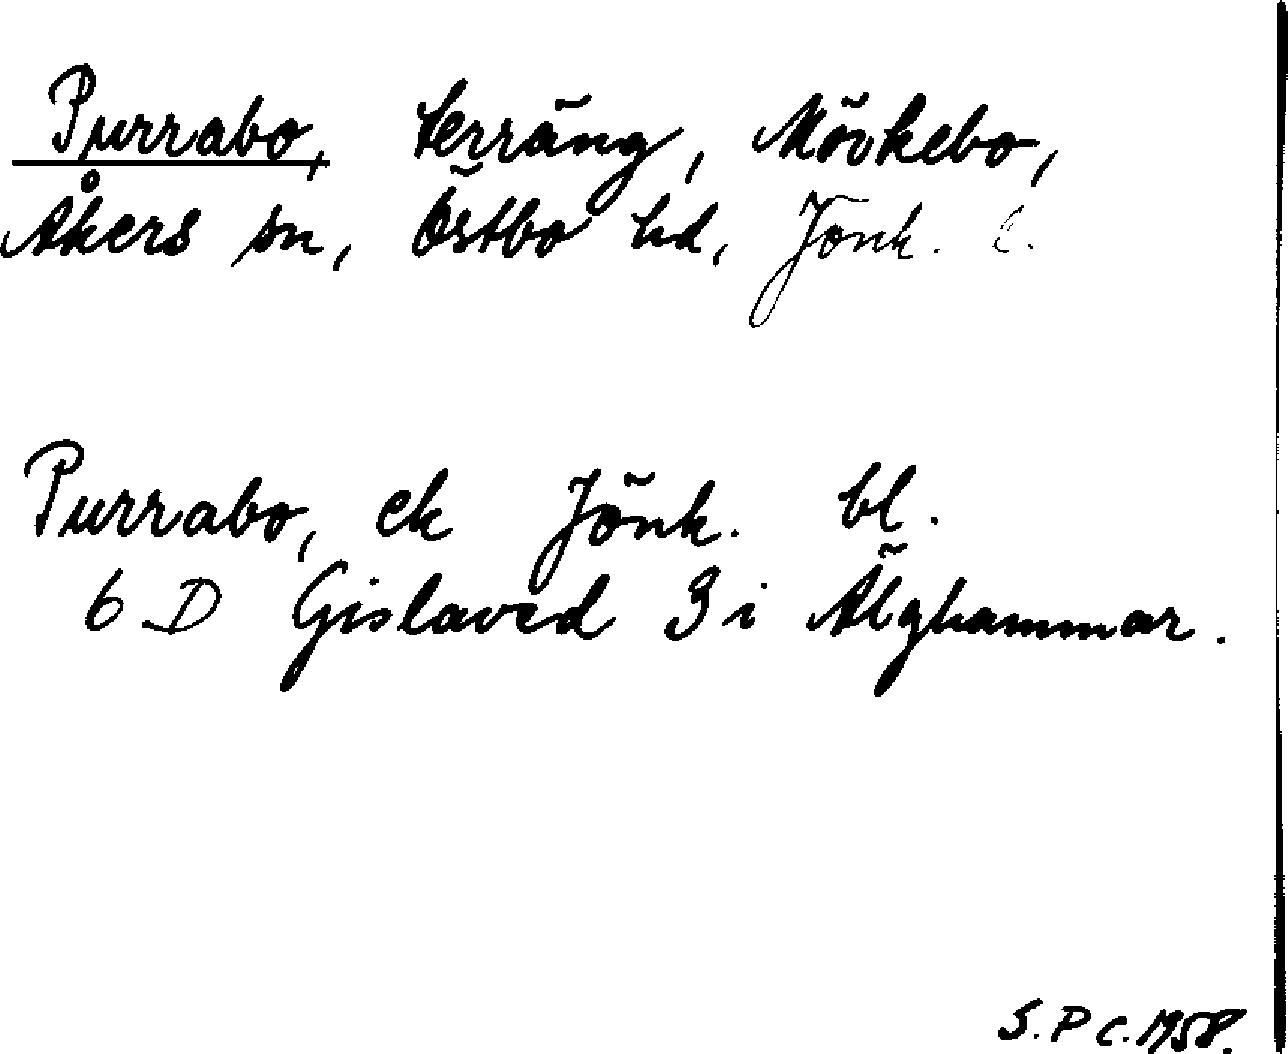 Purrabo, terräng, Mörkebo,
Åkers sn, Östbo hd, Jönk. l.
Purrabo, ek Jönk. bl.
6 D Gislaved 3 i Älghammar.
S. P C. 1958.